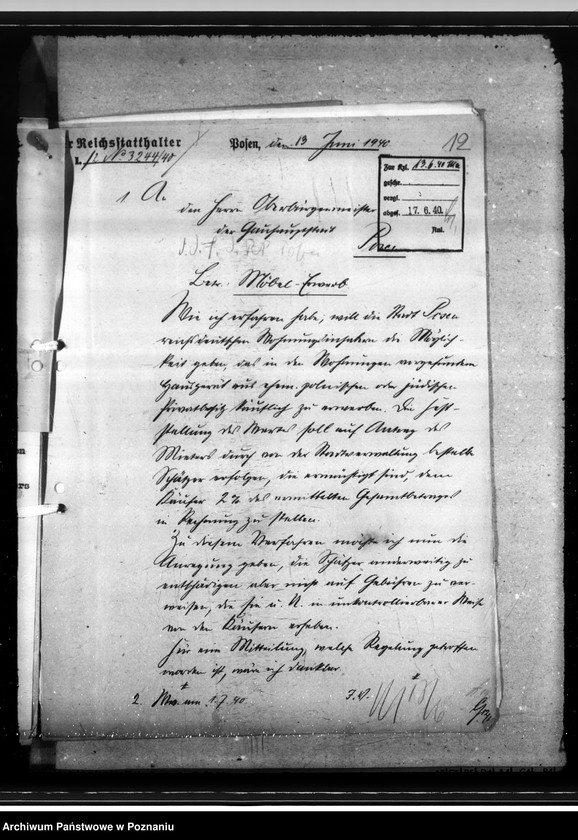 r Reichsstatthalter
Posen, den 13 Juni 1940.
12
I. /2 No 3244/40
Zur Kzl. 13.6.40
geschr.
vergl.
abges. 17. 6. 40.
Amt.
1 An
den Herrn Oberbürgermeister
der Gauhauptstadt
Posen
Betr.: Möbel-Erwerb
Wie ich erfahren habe, will die Stadt Posen
reichsdeutschen Wohnungsinhabern die Möglich-
keit geben, das in den Wohnungen vorgefundene
Hausgerät aus ehem. polnischen oder jüdischen
Privatbesitz käuflich zu erwerben. Die Fest-
stellung des Wertes soll auf Antrag des
Mieters durch von der Stadtverwaltung bestellte
Schätzer erfolgen, die ermächtigt sind, dem
Käufer 2% des ermittelten Gesamtbetrages
in Rechnung zu stellen.
Zu diesem Verfahren möchte ich nun die
Anregung geben, die Schätzer anderweitig zu
entschädigen aber nicht auf Gebühren zu ver-
weisen, die sie u. U. in unkontrollierbarer Weise
von den Käufern erheben.
Für eine Mitteilung, welche Regelung getroffen
worden ist, wäre ich dankbar.
2. Wv. am 1.7.40.
I.V.
13/6
Archiwum Państwowe w Poznaniu